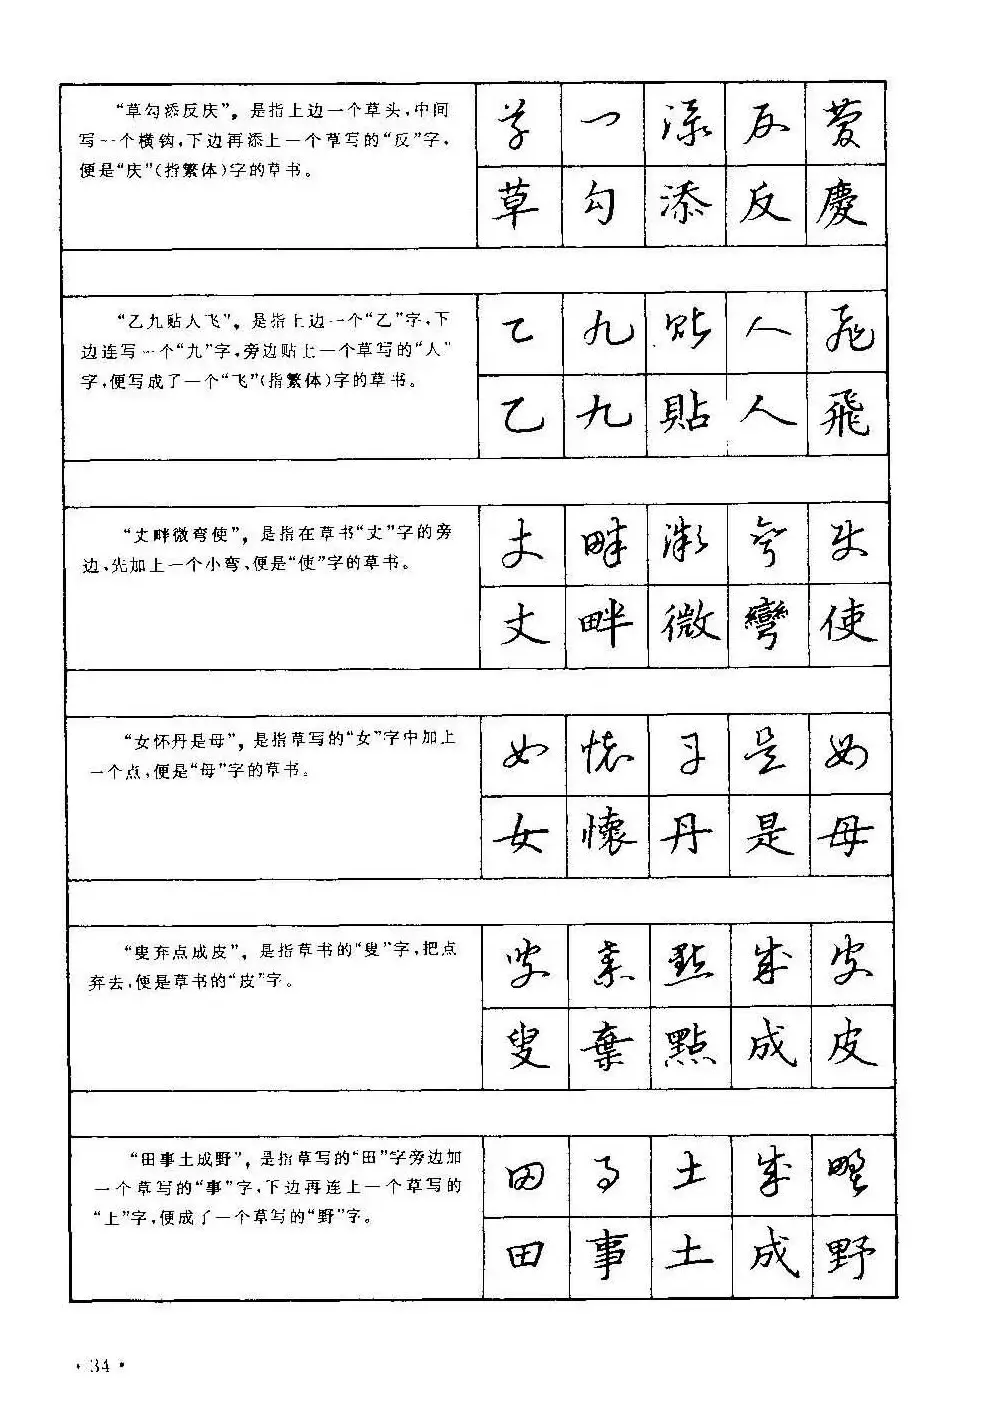 “草勾添反庆”，是指上边一个草头，中间
写一个横钩，下边再添上一个草写的“反”字，
便是“庆”（指繁体）字的草书。
草 一 添 反 慶
草 勾 添 反 慶
“乙九贴人飞”，是指上边一个“乙”字，下
边连写一个“九”字，旁边贴上一个草写的“人”
字，便写成了一个“飞”（指繁体）字的草书。
乙 九 貼 人 飛
乙 九 貼 人 飛
“丈畔微弯使”，是指在草书“丈”字的旁
边，先加上一个小弯，便是“使”字的草书。
丈 畔 微 彎 使
丈 畔 微 彎 使
“女怀丹是母”，是指草写的“女”字中加上
一个点，便是“母”字的草书。
女 懷 丹 是 母
女 懷 丹 是 母
“叟弃点成皮”，是指草书的“叟”字，把点
弃去，便是草书的“皮”字。
叟 棄 點 成 皮
叟 棄 點 成 皮
“田事土成野”，是指草写的“田”字旁边加
一个草写的“事”字，下边再连上一个草写的
“土”字，便成了一个草写的“野”字。
田 事 土 成 野
田 事 土 成 野
·34·